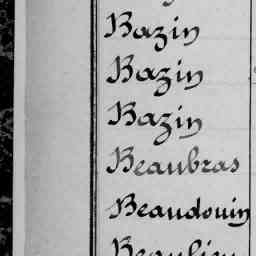 Bazin
Bazin
Bazin
Beaubras
Beaudouin
Beaulieu